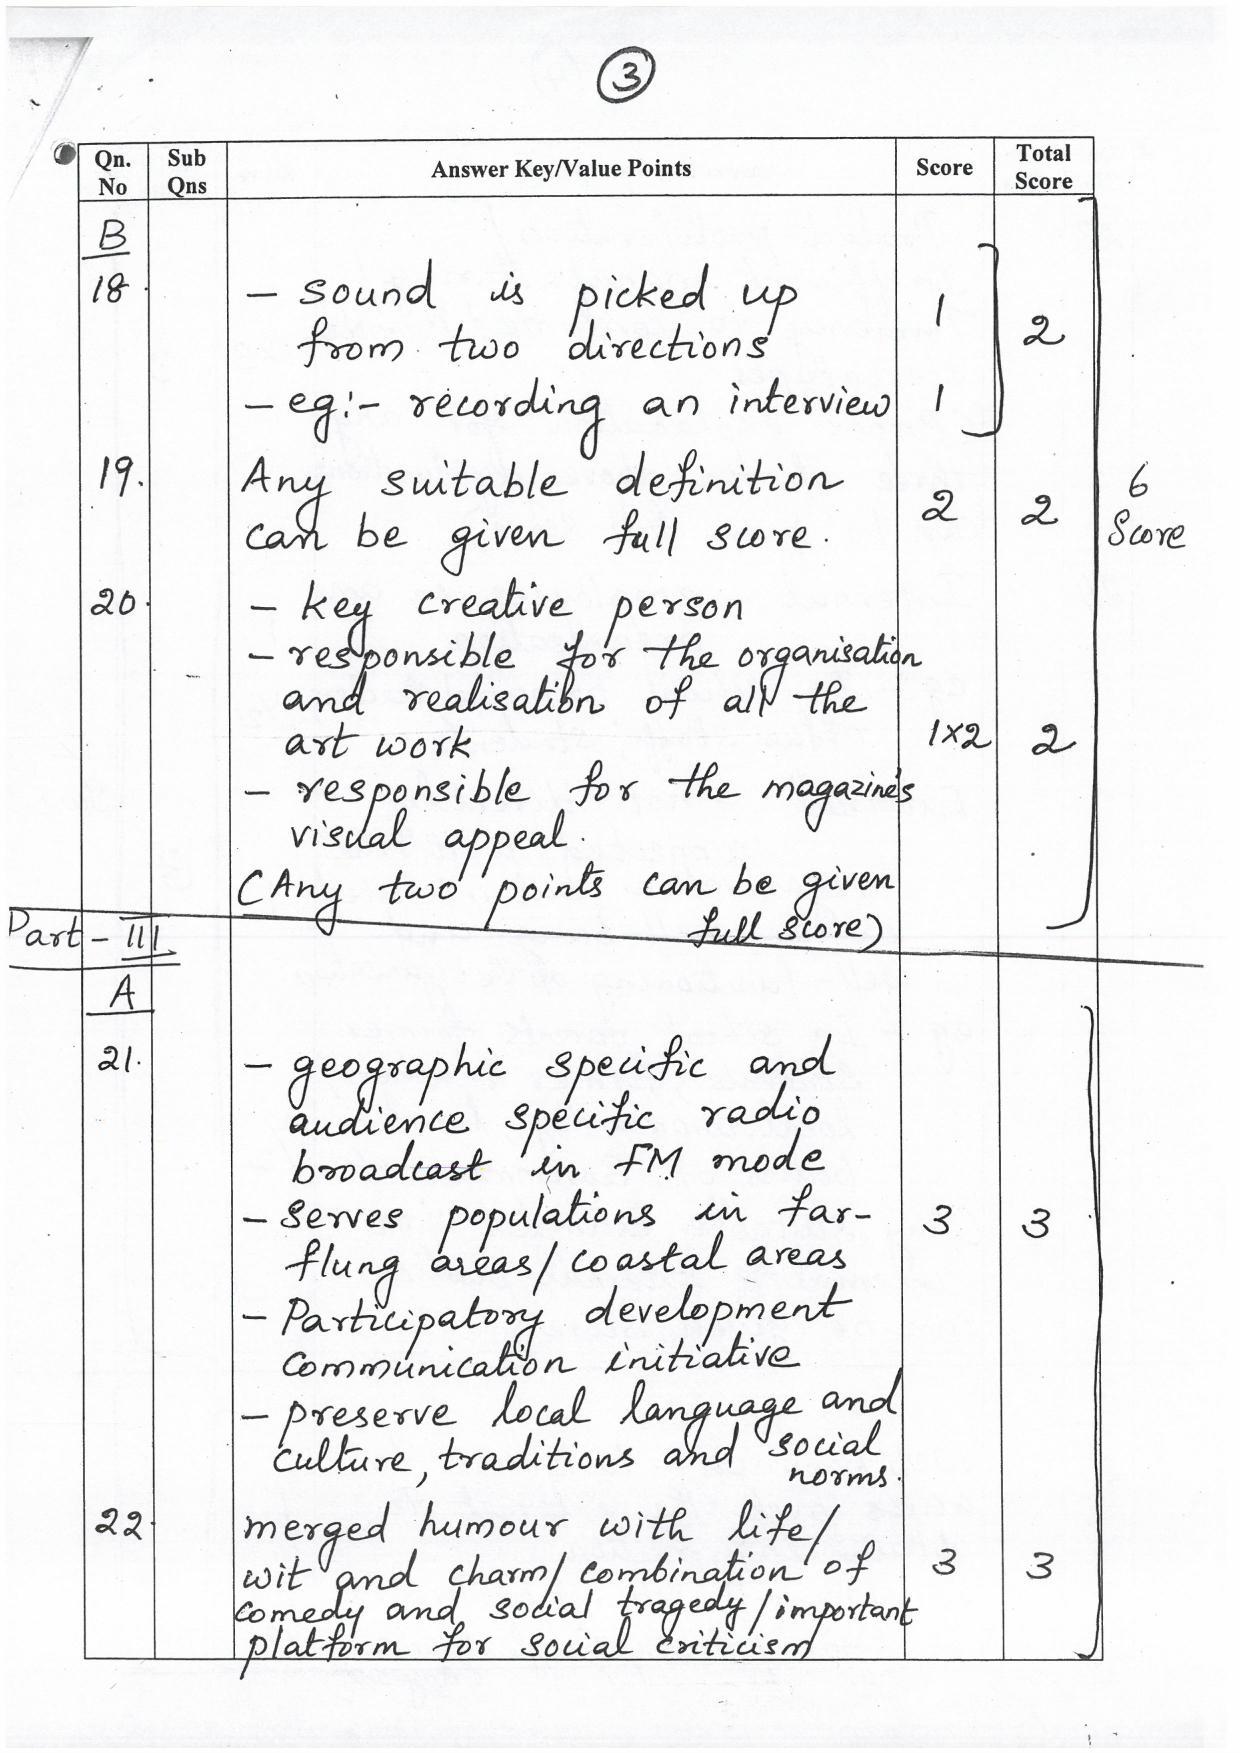 3
Qn. No
Sub Qns
Answer Key/Value Points
Score
Total Score
B
18 - sound is picked up 1
from two directions 2
- eg:- recording an interview 1
19. Any suitable definition
can be given full score. 2 2
6 Score
20. - key creative person
- responsible for the organisation
and realisation of all the
art work 1x2 2
- responsible for the magazine's
visual appeal.
(Any two points can be given
full score)
Part - III
A
21. - geographic specific and
audience specific radio
broadcast in FM mode
- Serves populations in far- 3 3
flung areas/coastal areas
- Participatory development
communication initiative
- preserve local language and
culture, traditions and social
norms.
22. merged humour with life/
wit and charm/combination of 3 3
comedy and social tragedy/important
platform for social criticism